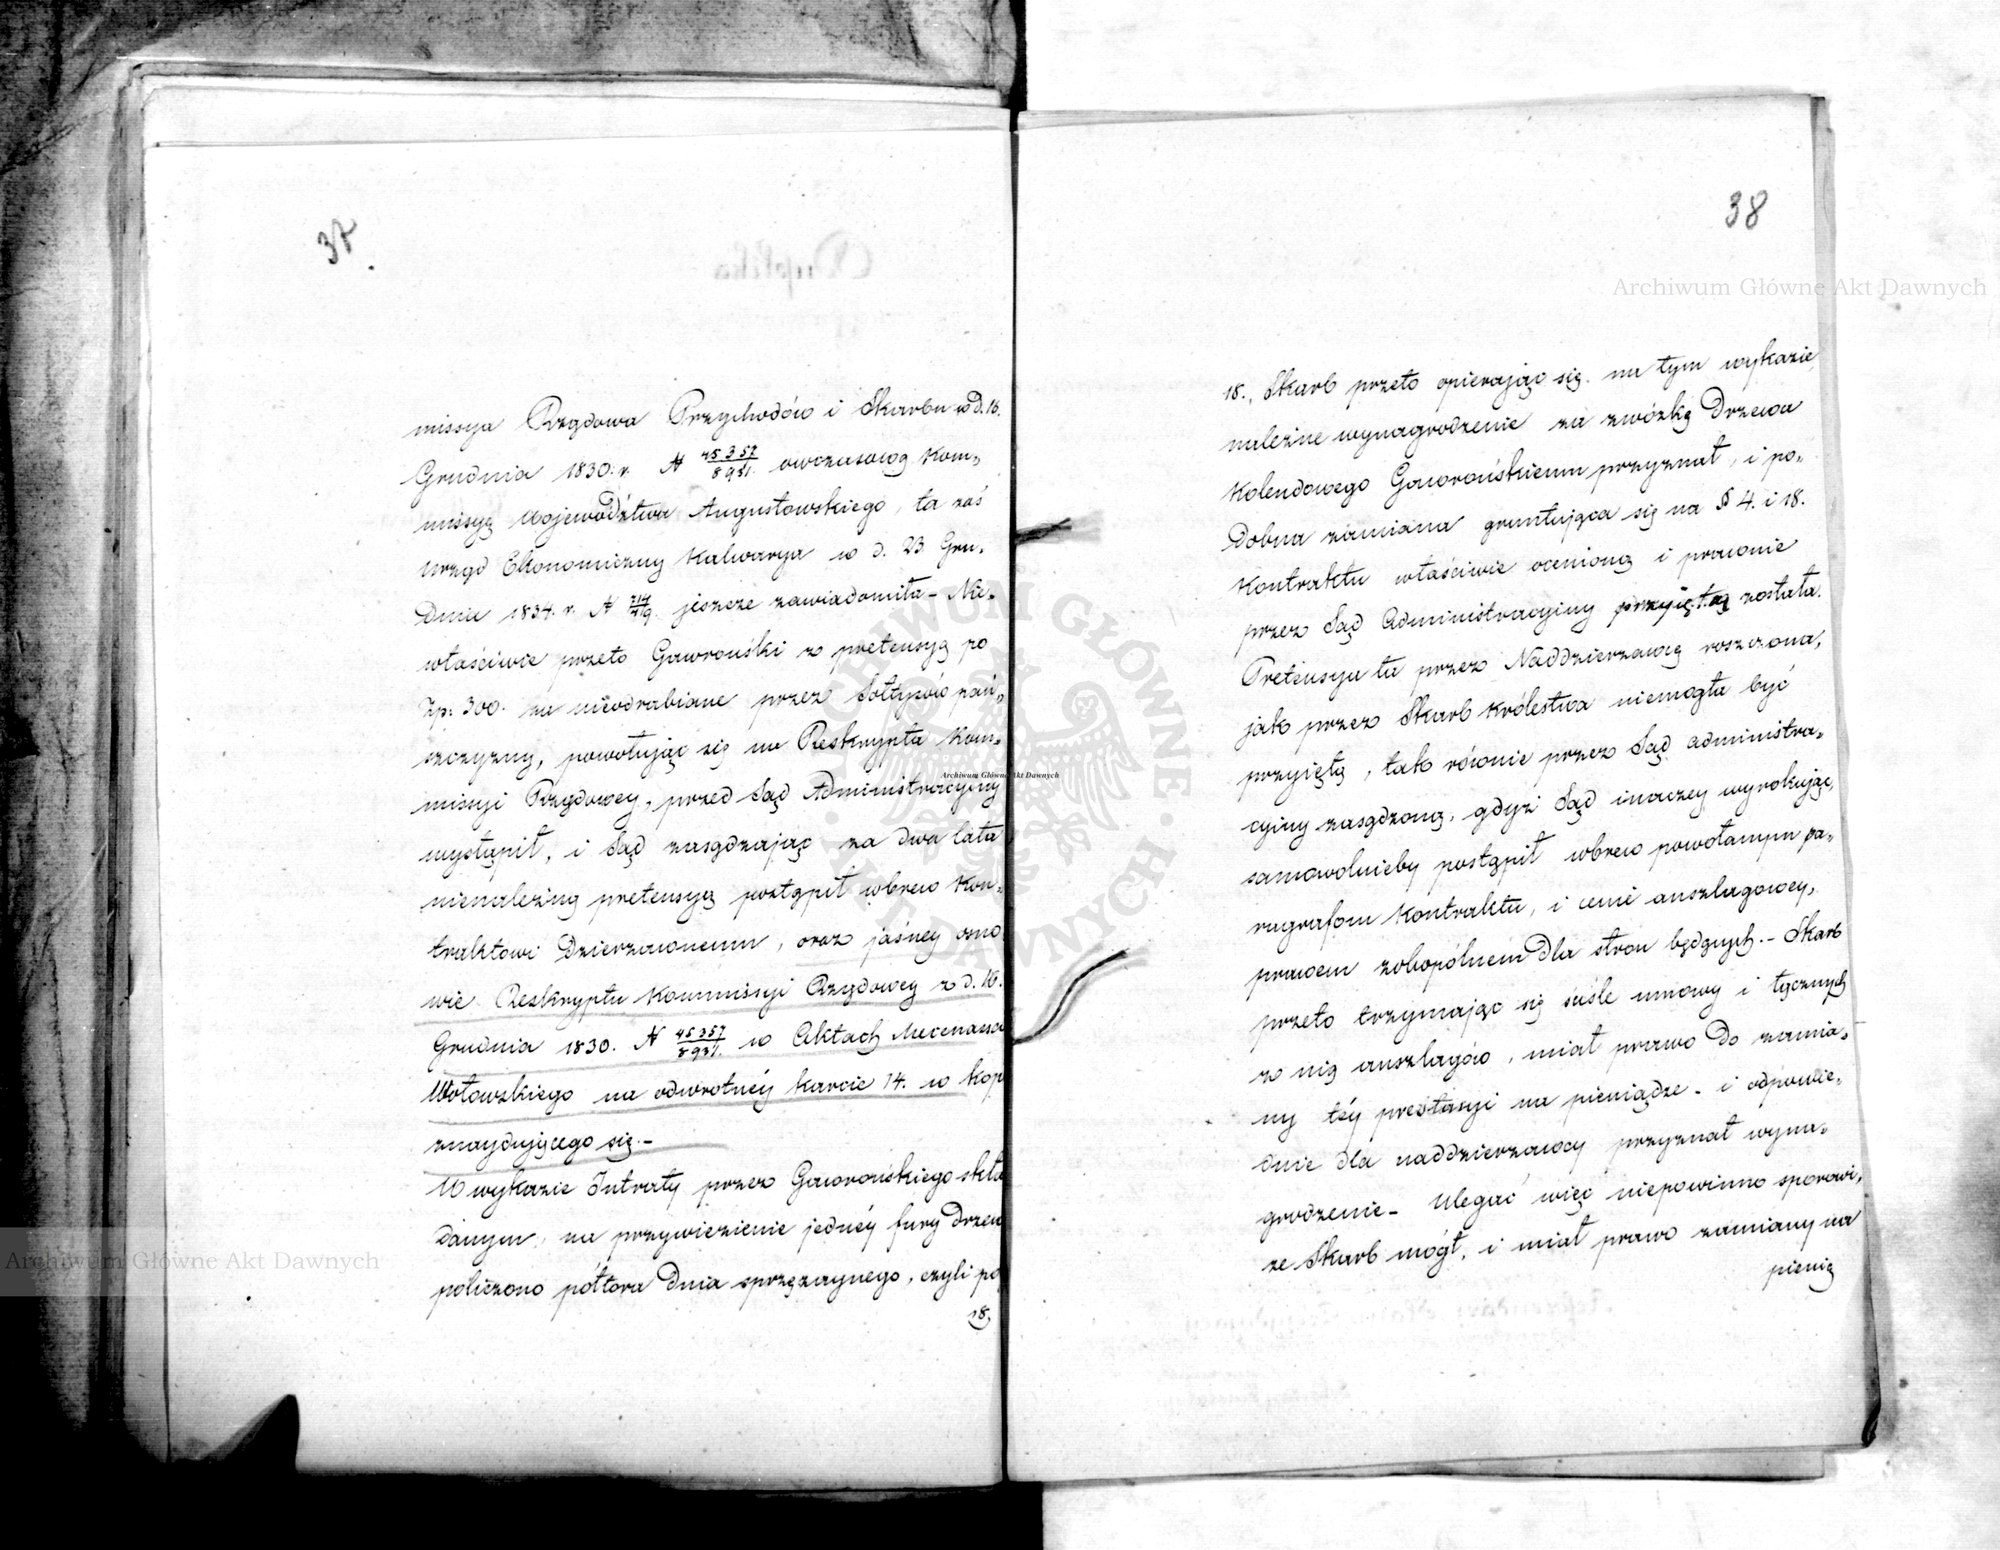 37.
missya Rządowa Przychodów i Skarbu w d. 16.
Grudnia 1830. r. N 45357/8931. owczasową Kom=
missyę Województwa Augustowskiego, ta zaś
Urząd Ekonomiczny Kalwarya w d. 23 Gru=
dnia 1834. r. N jeszcze zawiadomiła – Nie=
właściwie przeto Gaworoński z pretensyą po
Zp: 300. za nieodrabiane przez Sołtysów pań=
szczyzny, powołując się na Reskrypta Kom=
missyi Rządowey, przed Sąd Administracyjny
wystąpił, i Sąd zasądzając za dwa lata
nienależną pretensyą postąpił wbrew Kon=
traktowi Dzierzawnemu, oraz jaśney osno
wie Reskryptu Kommissyi Rządowey z d. 16.
Grudnia 1830. N 45357/8931. w Aktach Mecenasa
Wołowskiego na odwrotnéy karcie 14. w kop
znaydującego się. –
W wykazie Intraty przez Gaworońskiego skła
danym, na przywiezienie jednéy fury Drzew
policzono półtora dnia sprzężaynego, czyli po
18,
38
18., Skarb przeto opierając się na tym wykazie,
należne wynagrodzenie za zwózkę Drzewa
Kolendowego Gaworońskiemu przyznał, i po=
dobna zamiana gruntująca się na § 4. i 18.
Kontraktu właściwie ocenioną i prawnie
przez Sąd Administracyiny przyiętą została.
Pretensya ta przez Naddzierzawcę roszczona,
jak przez Skarb Królestwa niemogła być
przyiętą, tak równie przez Sąd administra=
cyiny zasądzoną, gdyż Sąd inaczey wyrokując,
samowolnieby postąpił wbrew powołanym pa=
ragrafom Kontraktu, i cenie anszlagowey,
prawem zobopólnem dla stron będących. – Skarb
przeto trzymając się ściśle umowy i łącznych
z nią anszlagów, miał prawo do zamia=
ny téy prestacyi na pieniądze – i odpowie=
dnie dla naddzierzawcy przyznał wyna=
grodzenie – Ulegać więc niepowinno sporowi,
ze Skarb mógł, i miał prawo zamiany na
pienią
Archiwum Główne Akt Dawnych
Archiwum Główne Akt Dawnych
Archiwum Główne Akt Dawnych
ARCHIWUM GŁÓWNE AKT DAWNYCH